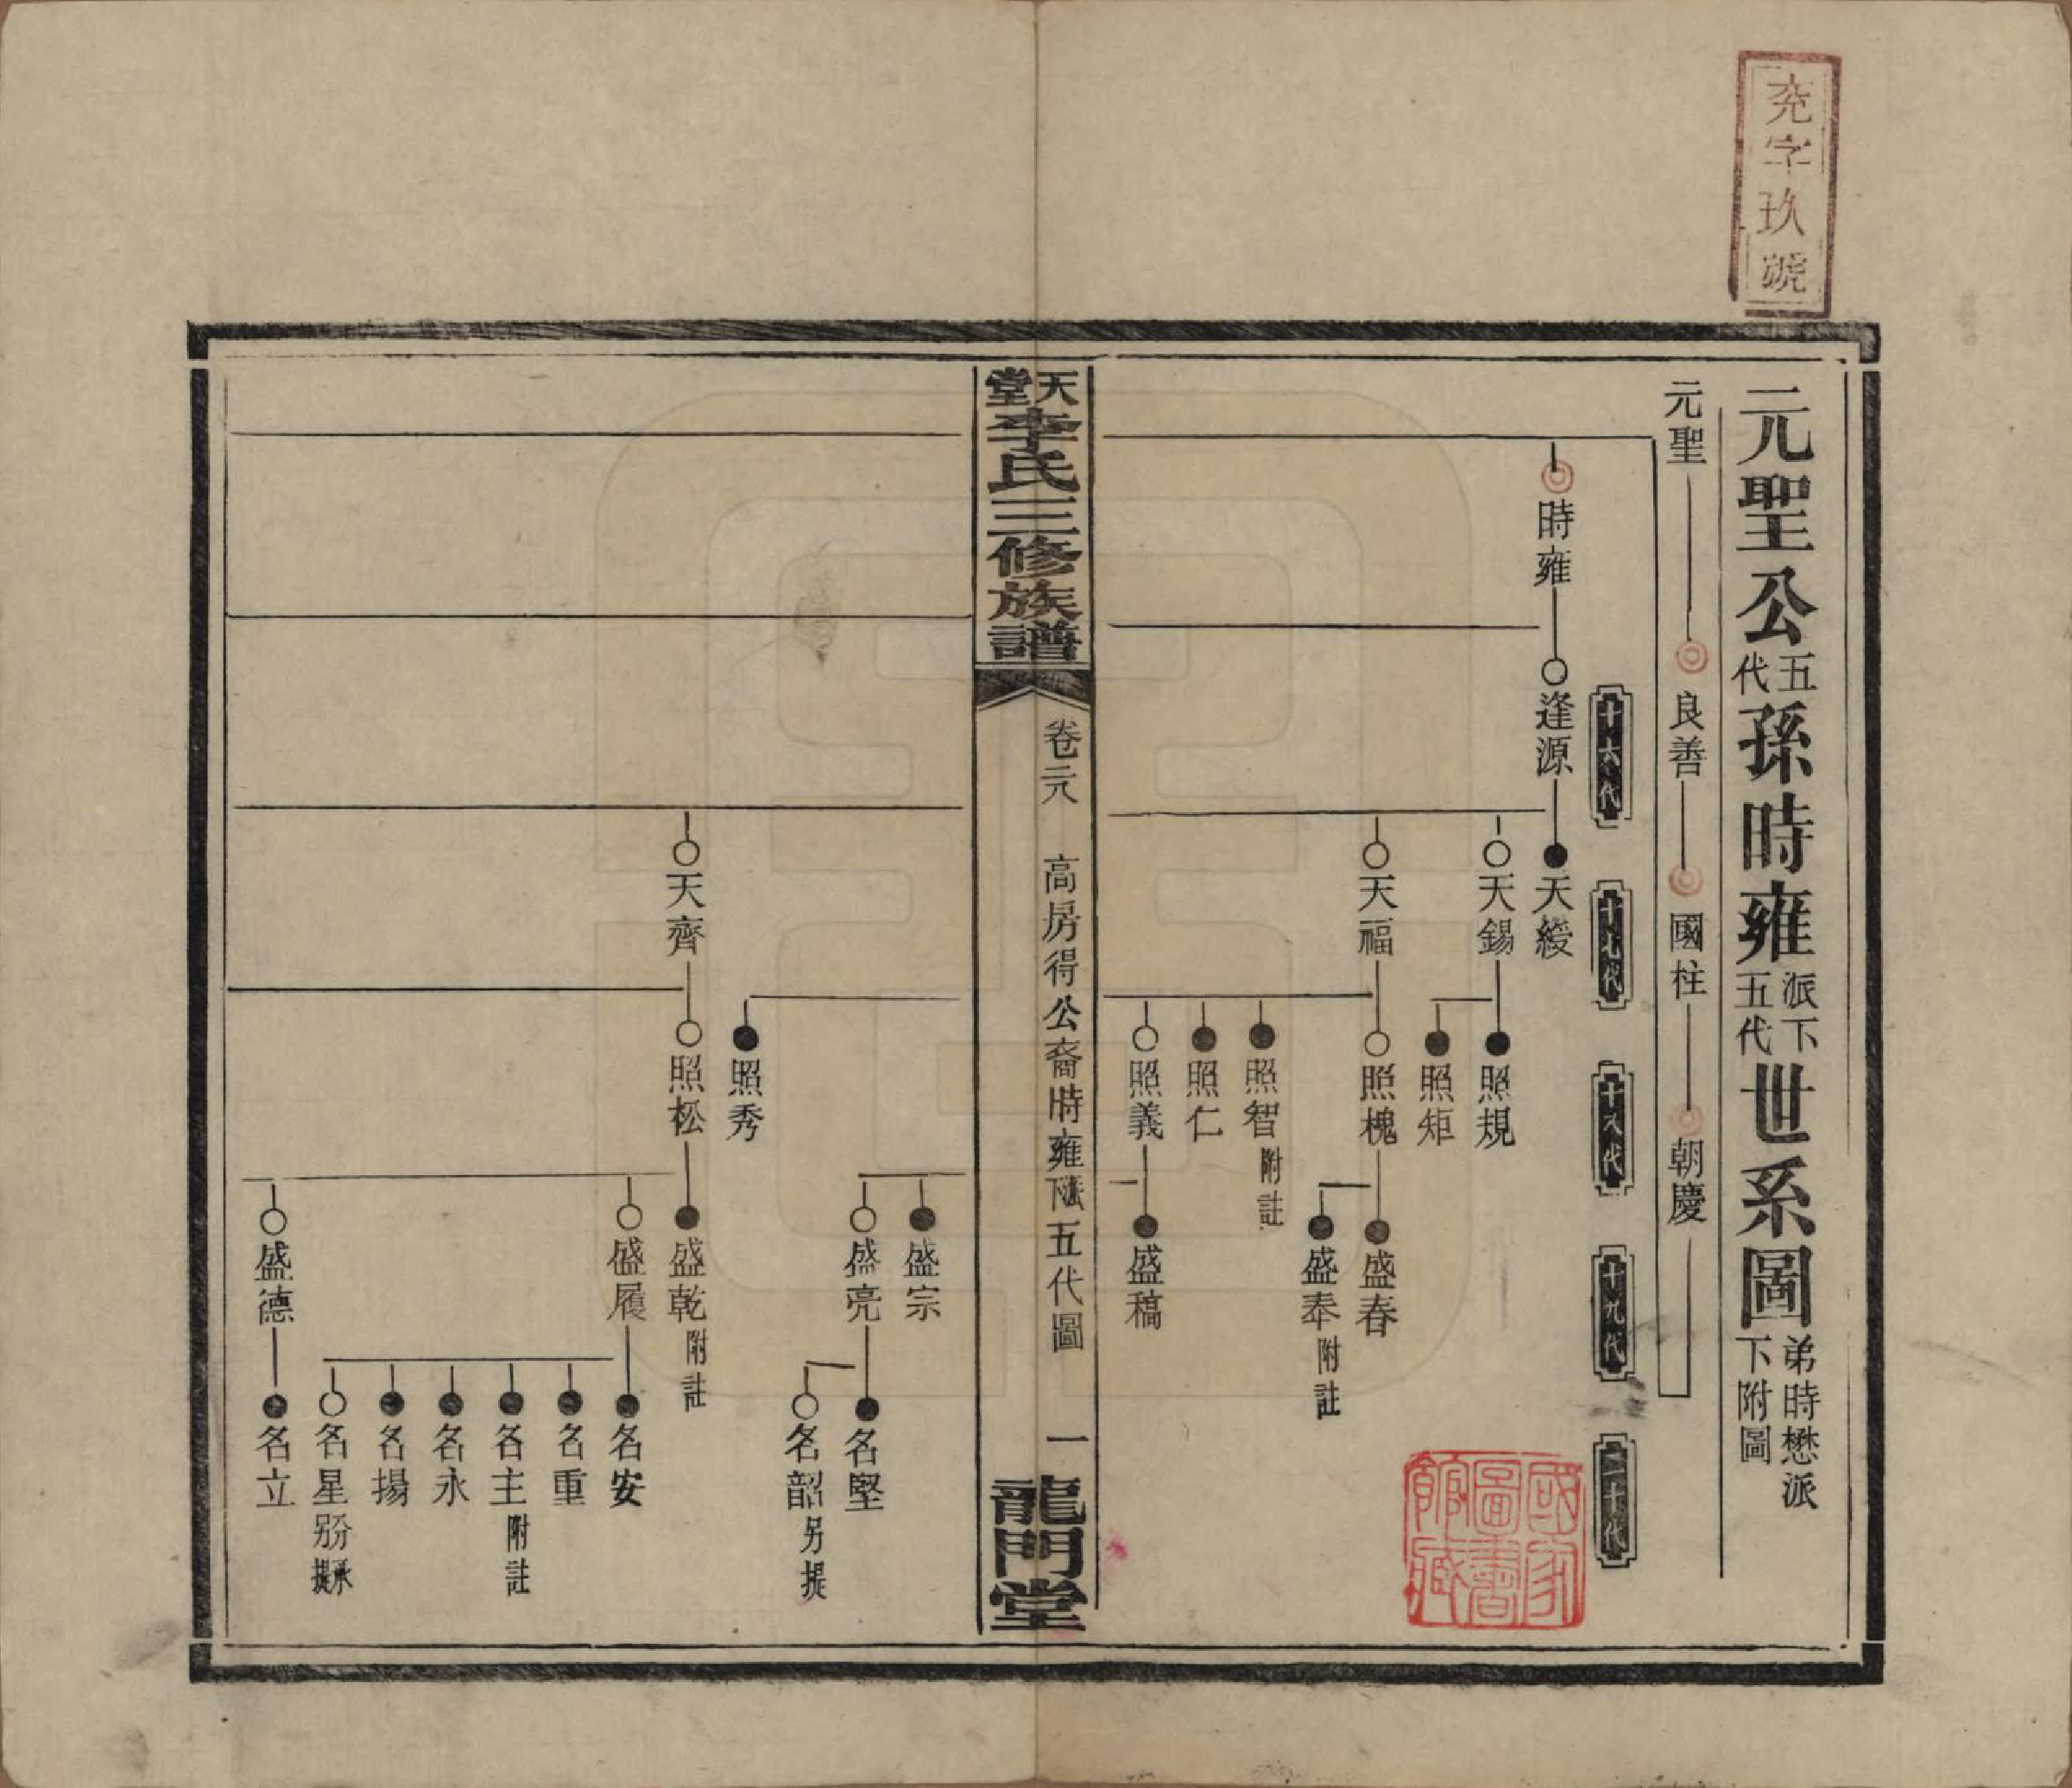 充字玖號
元聖公五代孫時雍派下五代世系圖弟時懋派下附圖
元聖 良善 國柱 朝慶
十六代 十七代 十八代 十九代 二十代
時雍 逢源 天綬
天錫 照規
照矩
天福 照槐 盛春
盛奉附註
照智附註
照仁
照義 盛稿
天堂李氏三修族譜
卷二八
高房得公裔時雍派下五代圖
一
龍門堂
盛宗
盛亮 名堅
名韶另提
照秀
天齊 照松 盛乾附註
盛履 名安
名重
名主附註
名永
名揚
名星分承另提
盛德 名立
國家圖書館藏